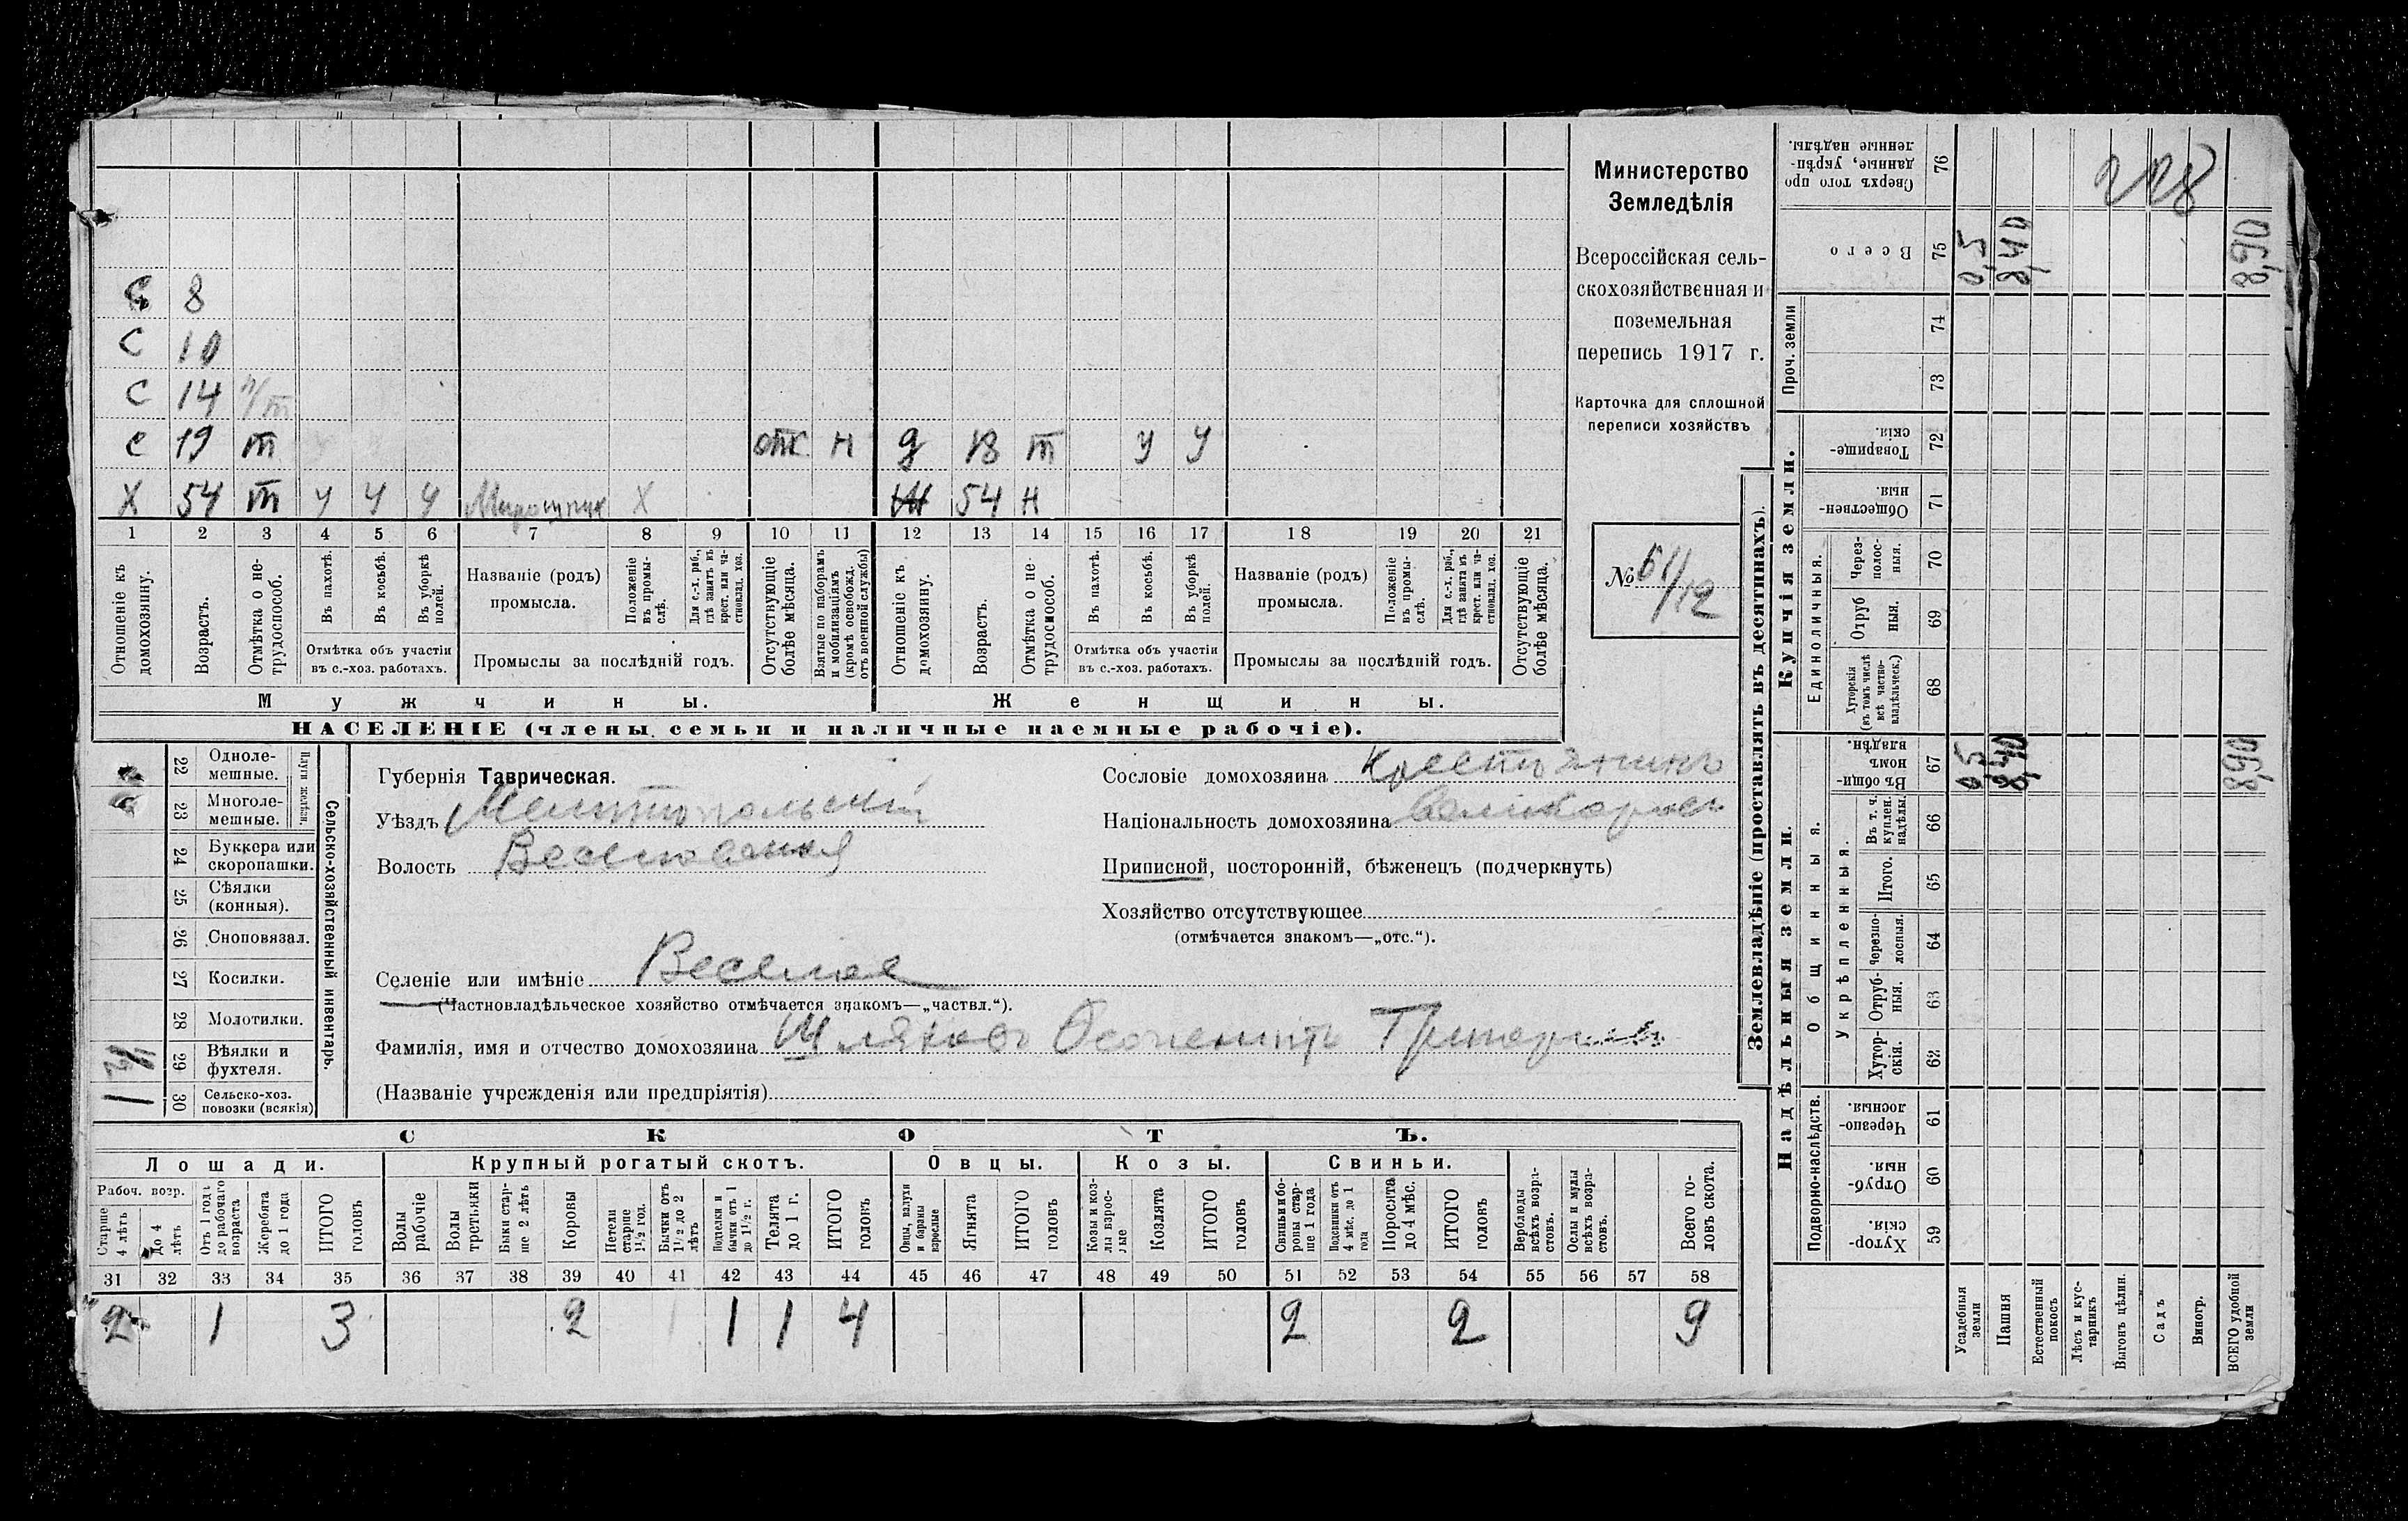 С 8
С 10
С 14 п/т
С 19 т отс н д 18 т у у
Х 54 т у у у Х Ж 54 н
1 2 3 4 5 6 7 8 9 10 11 12 13 14 15 16 17 18 19 20 21
Отношеніе къ домохозяину.
Возрастъ.
Отмѣтка о не-трудоспособ.
Въ пахотѣ.
Въ косьбѣ.
Въ уборкѣ полей.
Отмѣтка объ участіи въ с.-хоз. работахъ.
Названіе (родъ) промысла.
Положеніе въ промы-слѣ.
Для с.-х. раб., гдѣ занятъ въ крест. или ча-стновлад. хоз.
Промыслы за послѣдній годъ.
Отсутствующіе болѣе мѣсяца.
Взятые по наборамъ и мобилизаціямъ (кромѣ освобожд. отъ военной службы)
Отношеніе къ домохозяину.
Возрастъ.
Отмѣтка о не-трудоспособ.
Въ пахотѣ.
Въ косьбѣ.
Въ уборкѣ полей.
Отмѣтка объ участіи въ с.-хоз. работахъ.
Названіе (родъ) промысла.
Положеніе въ промы-слѣ.
Для с.-х. раб., гдѣ занята въ крест. или ча-стновлад. хоз.
Промыслы за послѣдній годъ.
Отсутствующіе болѣе мѣсяца.
Мужчины. Женщины.
НАСЕЛЕНІЕ (члены семьи и наличные наемные рабочіе).
Министерство
Земледѣлія
Всероссійская сель-
скохозяйственная и
поземельная
перепись 1917 г.
Карточка для сплошной
переписи хозяйствъ
№ 61/12
22 Одноле-мешные.
23 Многоле-мешные.
Плуги желѣзн.
24 Буккера или скоропашки.
25 Сѣялки (конныя).
26 Сноповязал.
27 Косилки.
28 Молотилки.
29 Вѣялки и фухтеля.
30 Сельско-хоз. повозки (всякія) 1
Сельско-хозяйственный инвентарь.
Губернія Таврическая.
Уѣздъ Мелитопольскій
Волость Веселовская
Сословіе домохозяина Крестьянинъ
Національность домохозяина Великороссъ
Приписной, посторонній, бѣженецъ (подчеркнуть)
Хозяйство отсутствующее
(отмѣчается знакомъ—„отс.“).
Селеніе или имѣніе Веселое
(Частновладѣльческое хозяйство отмѣчается знакомъ—„частвл.“).
Фамилія, имя и отчество домохозяина Шляховъ Григорьев
(Названіе учрежденія или предпріятія)
СКОТЪ.
Лошади. Крупный рогатый скотъ. Овцы. Козы. Свиньи.
Рабоч. возр.
Старше 4 лѣтъ
До 4 лѣтъ
Отъ 1 года до рабочаго возраста
Жеребята до 1 года
ИТОГО головъ
Волы рабочіе
Волы третьяки
Быки стар-ше 2 лѣтъ
Коровы
Нетели старше 1½ год.
Бычки отъ 1½ до 2 лѣтъ
Подтелки и бычки отъ 1 до 1½ г.
Телята до 1 г.
ИТОГО головъ
Овцы, валухи и бараны взрослые
Ягнята
ИТОГО головъ
Козы и коз-лы взрос-лые
Козлята
ИТОГО головъ
Свиньи и бо-ровы стар-ше 1 года
Подсвинки отъ 4 мѣс. до 1 года
Поросята до 4 мѣс.
ИТОГО головъ
Верблюды всѣхъ возра-стовъ.
Ослы и мулы всѣхъ возра-стовъ.
Всего го-ловъ скота.
31 32 33 34 35 36 37 38 39 40 41 42 43 44 45 46 47 48 49 50 51 52 53 54 55 56 57 58
2 1 3 2 1 1 4 2 2 9
Землевладѣніе (проставлять въ десятинахъ).
Надѣльныя земли. Купчія земли.
Подворно-наслѣдств.
Общинныя.
Укрѣпленныя.
Единоличныя.
Проч. земли
Сверхъ того про данные, укрѣп-ленные надѣлы. 76
Всего 75 0,5 8,40 8,90
74
73
Товарище-скія. 72
Обществен-ныя. 71
Через-полос-ныя. 70
Отруб ныя. 69
Хуторскія (въ томъ числѣ всѣ частно-владѣльческ.) 68
Въ общи-номъ владѣн. 67 0,5 8,40 8,90
Въ т. ч. куплен. надѣлы. 66
Итого. 65
Черезпо-лосныя. 64
Отруб-ныя. 63
Хутор-скія. 62
Черезпо-лосныя. 61
Отруб-ныя. 60
Хутор-скія. 59
Усадебныя земли
Пашня
Естественный покосъ
Лѣсъ и кус-тарникъ
Выгонъ цѣлин.
Садъ
Виногр.
ВСЕГО удобной земли
228